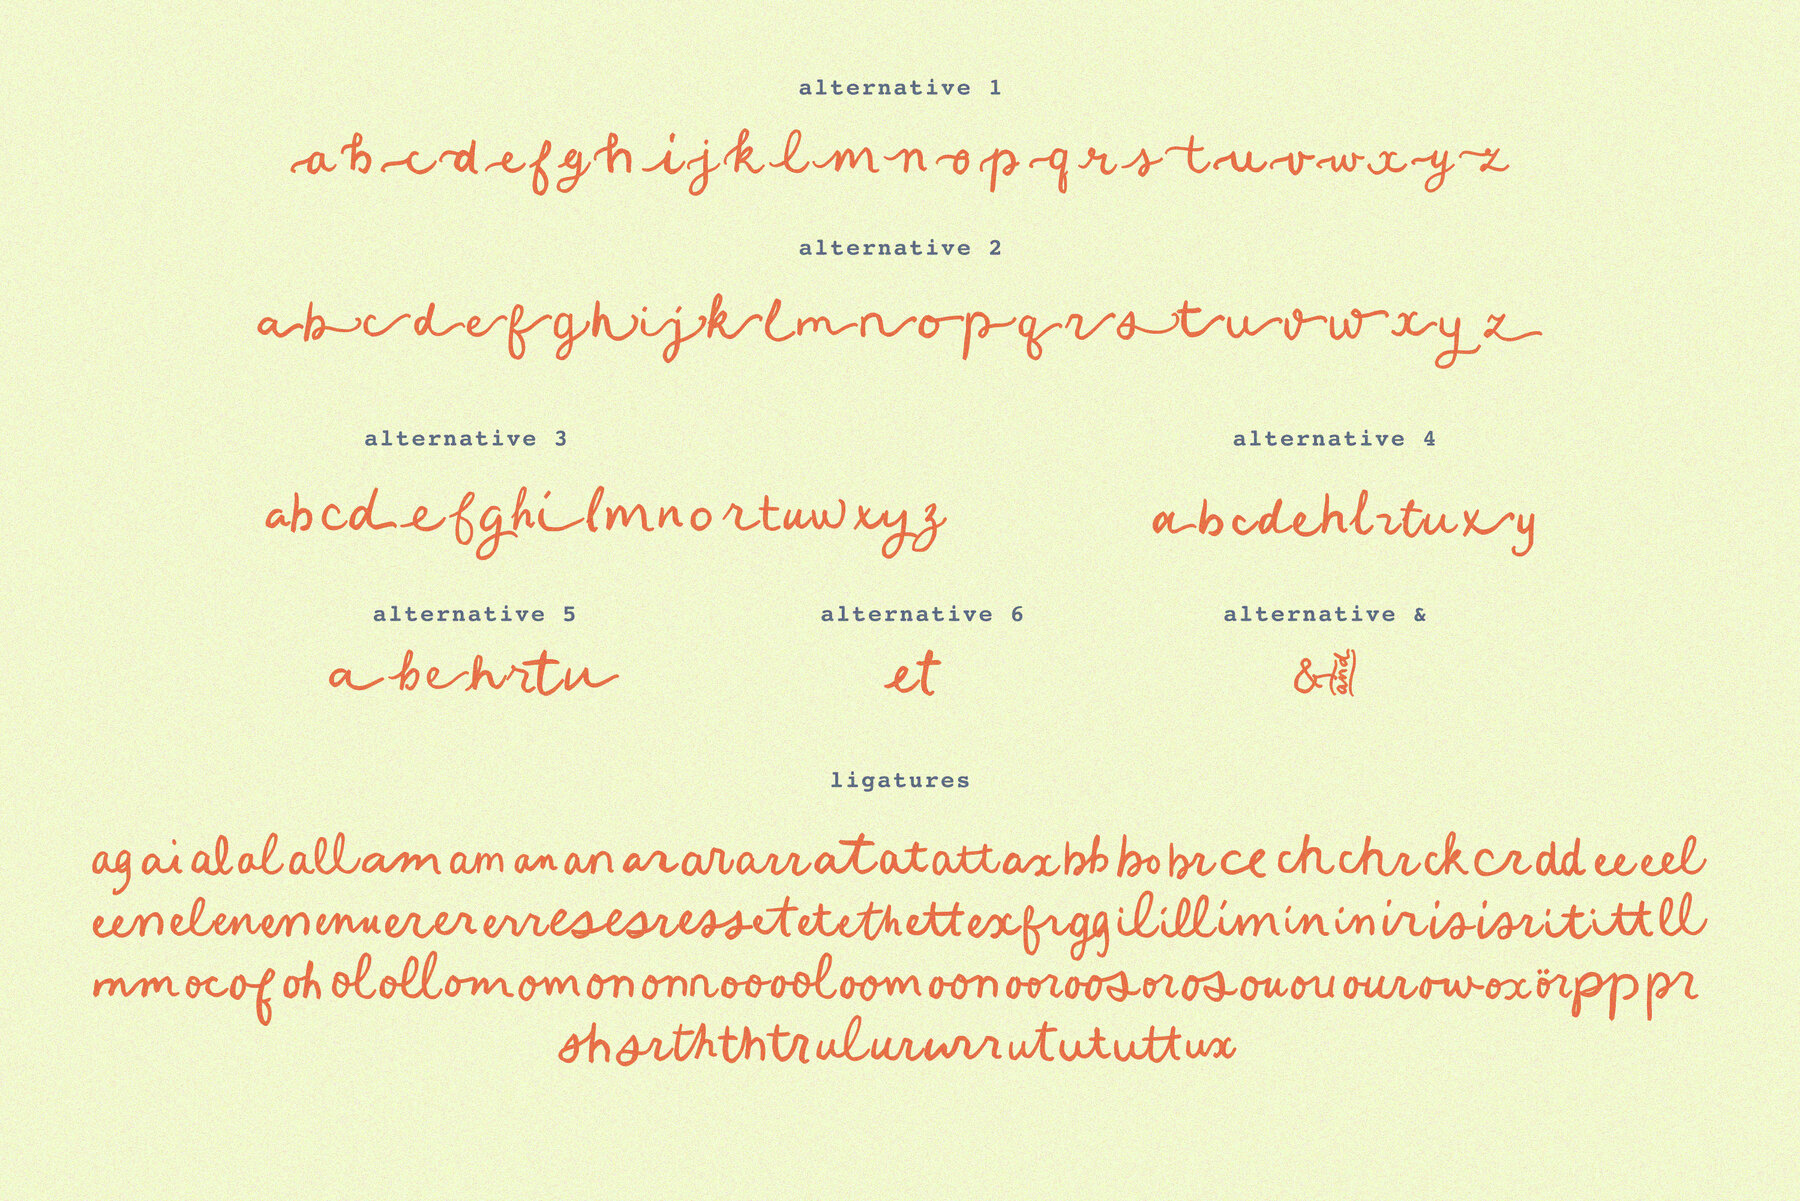 alternative 1
abcdefghijklmnopqrstuvwxyz
alternative 2
abcdefghijklmnopqrstuvwxyz
alternative 3
abcdefghilmnortuwxyz
alternative 4
abcdehlrtuxy
alternative 5
abehrtu
alternative 6
et
alternative &
& and
ligatures
ag ai al al all am am an an ar ar arr at at att ax bb bo br ce ch chr ck cr dd ee eel
een el en en enu er er err es es res ss et et eth ett ex fr gg il ill im in in ir is is rit it itt ll
mm oc of oh ol oll om om on onn oo ool oom oon oor oos or os ou ou our ow ox ör pp pp pr
sh sr th th tr ul ur ur rr ut ut utt ux